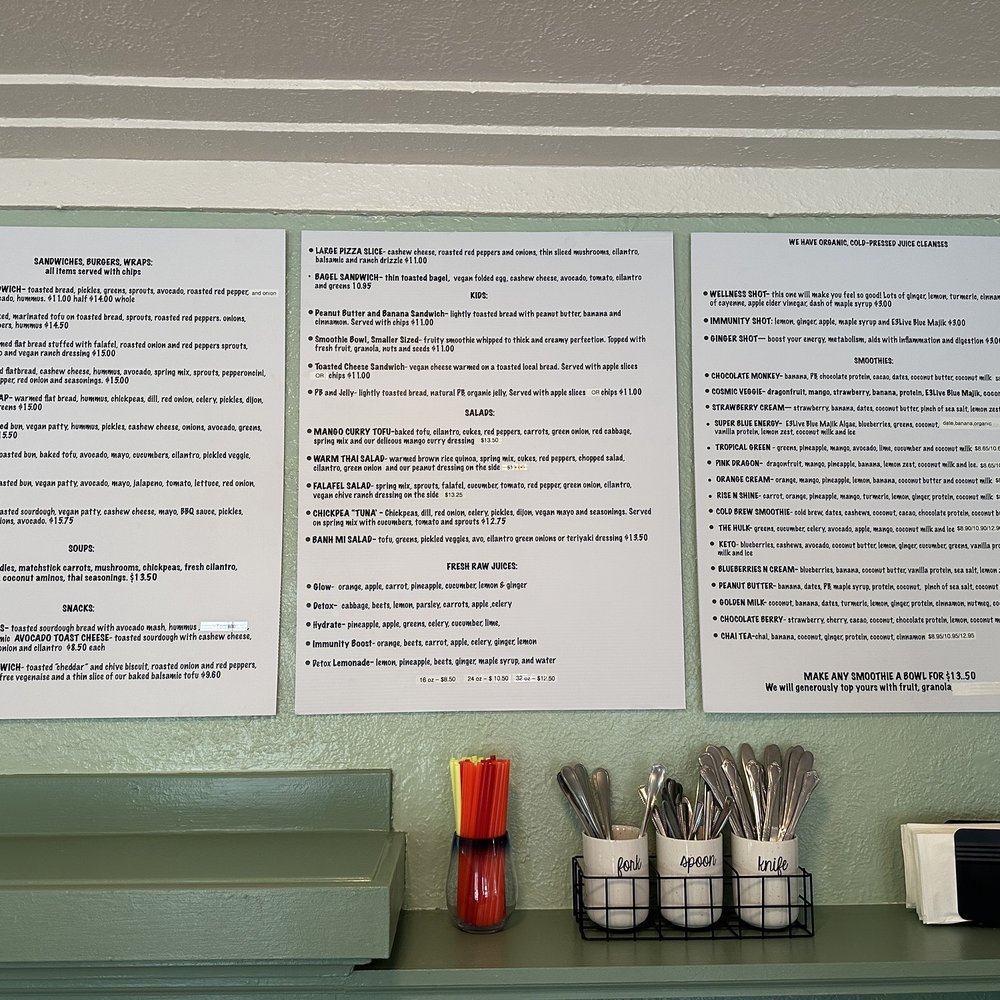 SANDWICHES, BURGERS, WRAPS:
all items served with chips
WICH- toasted bread, pickles, greens, sprouts, avocado, roasted red pepper, and onion
cado, hummus. $11.00 half $14.00 whole
ed, marinated tofu on toasted bread, sprouts, roasted red peppers. onions,
pers, hummus $14.50
med flat bread stuffed with falafel, roasted onion and red peppers sprouts,
o and vegan ranch dressing $15.00
d flatbread, cashew cheese, hummus, avocado, spring mix, sprouts, pepperoncini,
pper, red onion and seasonings. $15.00
AP- warmed flat bread, hummus, chickpeas, dill, red onion, celery, pickles, dijon,
eens $15.00
ed bun, vegan patty, hummus, pickles, cashew cheese, onions, avocado, greens,
5.50
oasted bun, baked tofu, avocado, mayo, cucumbers, cilantro, pickled veggie,
asted bun, vegan patty, avocado, mayo, jalapeno, tomato, lettuce, red onion,
asted sourdough, vegan patty, cashew cheese, mayo, BBQ sauce, pickles,
ions, avocado. $15.75
SOUPS:
dles, matchstick carrots, mushrooms, chickpeas, fresh cilantro,
coconut aminos, thai seasonings. $13.50
SNACKS:
S- toasted sourdough bread with avocado mash, hummus
mic AVOCADO TOAST CHEESE- toasted sourdough with cashew cheese,
onion and cilantro $8.50 each
WICH- toasted "cheddar" and chive biscuit, roasted onion and red peppers,
free vegenaise and a thin slice of our baked balsamic tofu $9.60
• LARGE PIZZA SLICE- cashew cheese, roasted red peppers and onions, thin sliced mushrooms, cilantro,
balsamic and ranch drizzle $11.00
• BAGEL SANDWICH- thin toasted bagel, vegan folded egg, cashew cheese, avocado, tomato, cilantro
and greens 10.95
KIDS:
• Peanut Butter and Banana Sandwich- lightly toasted bread with peanut butter, banana and
cinnamon. Served with chips $11.00
• Smoothie Bowl, Smaller Sized- fruity smoothie whipped to thick and creamy perfection. Topped with
fresh fruit, granola, nuts and seeds $11.00
• Toasted Cheese Sandwich- vegan cheese warmed on a toasted local bread. Served with apple slices
OR chips $11.00
• PB and Jelly- lightly toasted bread, natural PB organic jelly, Served with apple slices OR chips $11.00
SALADS:
• MANGO CURRY TOFU-baked tofu, cilantro, cukes, red peppers, carrots, green onion, red cabbage,
spring mix and our delicious mango curry dressing $13.50
• WARM THAI SALAD- warmed brown rice quinoa, spring mix, cukes, red peppers, chopped salad,
cilantro, green onion and our peanut dressing on the side
• FALAFEL SALAD- spring mix, sprouts, falafel, cucumber, tomato, red pepper, green onion, cilantro,
vegan chive ranch dressing on the side $13.25
• CHICKPEA "TUNA" - Chickpeas, dill, red onion, celery, pickles, dijon, vegan mayo and seasonings. Served
on spring mix with cucumbers, tomato and sprouts $12.75
• BANH MI SALAD- tofu, greens, pickled veggies, avo, cilantro green onions or teriyaki dressing $13.50
FRESH RAW JUICES:
• Glow- orange, apple, carrot, pineapple, cucumber, lemon & ginger
• Detox- cabbage, beets, lemon, parsley, carrots, apple ,celery
• Hydrate- pineapple, apple, greens, celery, cucumber, lime,
• Immunity Boost- orange, beets, carrot, apple, celery, ginger, lemon
• Detox Lemonade- lemon, pineapple, beets, ginger, maple syrup, and water
16 oz - $8.50 24 oz - $ 10.50 32 oz - $12.50
WE HAVE ORGANIC, COLD-PRESSED JUICE CLEANSES
• WELLNESS SHOT- this one will make you feel so good! Lots of ginger, lemon, turmeric, cinnam
of cayenne, apple cider vinegar, dash of maple syrup $3.00
• IMMUNITY SHOT: lemon, ginger, apple, maple syrup and E3Live Blue Majik $3.00
• GINGER SHOT— boost your energy, metabolism, aids with inflammation and digestion $3.00
SMOOTHIES:
• CHOCOLATE MONKEY- banana, PB, chocolate protein, cacao, dates, coconut butter, coconut milk
• COSMIC VEGGIE- dragonfruit, mango, strawberry, banana, protein, E3Live Blue Majik, coco
• STRAWBERRY CREAM— strawberry, banana, dates, coconut butter, pinch of sea salt, lemon zest
• SUPER BLUE ENERGY- E3Live Blue Majik Algae, blueberries, greens, coconut, date,banana,organic
vanilla protein, lemon zest, coconut milk and ice
• TROPICAL GREEN - greens, pineapple, mango, avocado, lime, cucumber and coconut milk $8.65/10.6
• PINK DRAGON- dragonfruit, mango, pineapple, banana, lemon zest, coconut milk and ice. $8.65/1
• ORANGE CREAM- orange, mango, pineapple, lemon, banana, coconut butter, coconut milk
• RISE N SHINE- carrot, orange, pineapple, mango, turmeric, lemon, ginger, protein, coconut milk
• COLD BREW SMOOTHIE- cold brew, dates, cashews, cacao, chocolate protein, coconut b
• THE HULK- greens, cucumber, celery, avocado, apple, mango, coconut milk and ice $8.90/10.90/12.9
• KETO- blueberries, cashews, avocado, coconut butter, lemon, ginger, cucumber, greens, vanilla pro
milk and ice
• BLUEBERRIES N CREAM- blueberries, banana, coconut butter, vanilla protein, sea salt, lemon
• PEANUT BUTTER- banana, dates, PB, maple syrup, protein, coconut, pinch of sea salt, coconut
• GOLDEN MILK- coconut, banana, dates, turmeric, lemon, ginger, protein, cinnamon, nutmeg, co
• CHOCOLATE BERRY- strawberry, cherry, cacao, coconut, chocolate protein, lemon, coconut m
• CHAI TEA-chai, banana, coconut, ginger, protein, coconut, cinnamon $8.95/10.95/12.95
MAKE ANY SMOOTHIE A BOWL FOR $13..50
We will generously top yours with fruit, granola
fork
spoon
knife